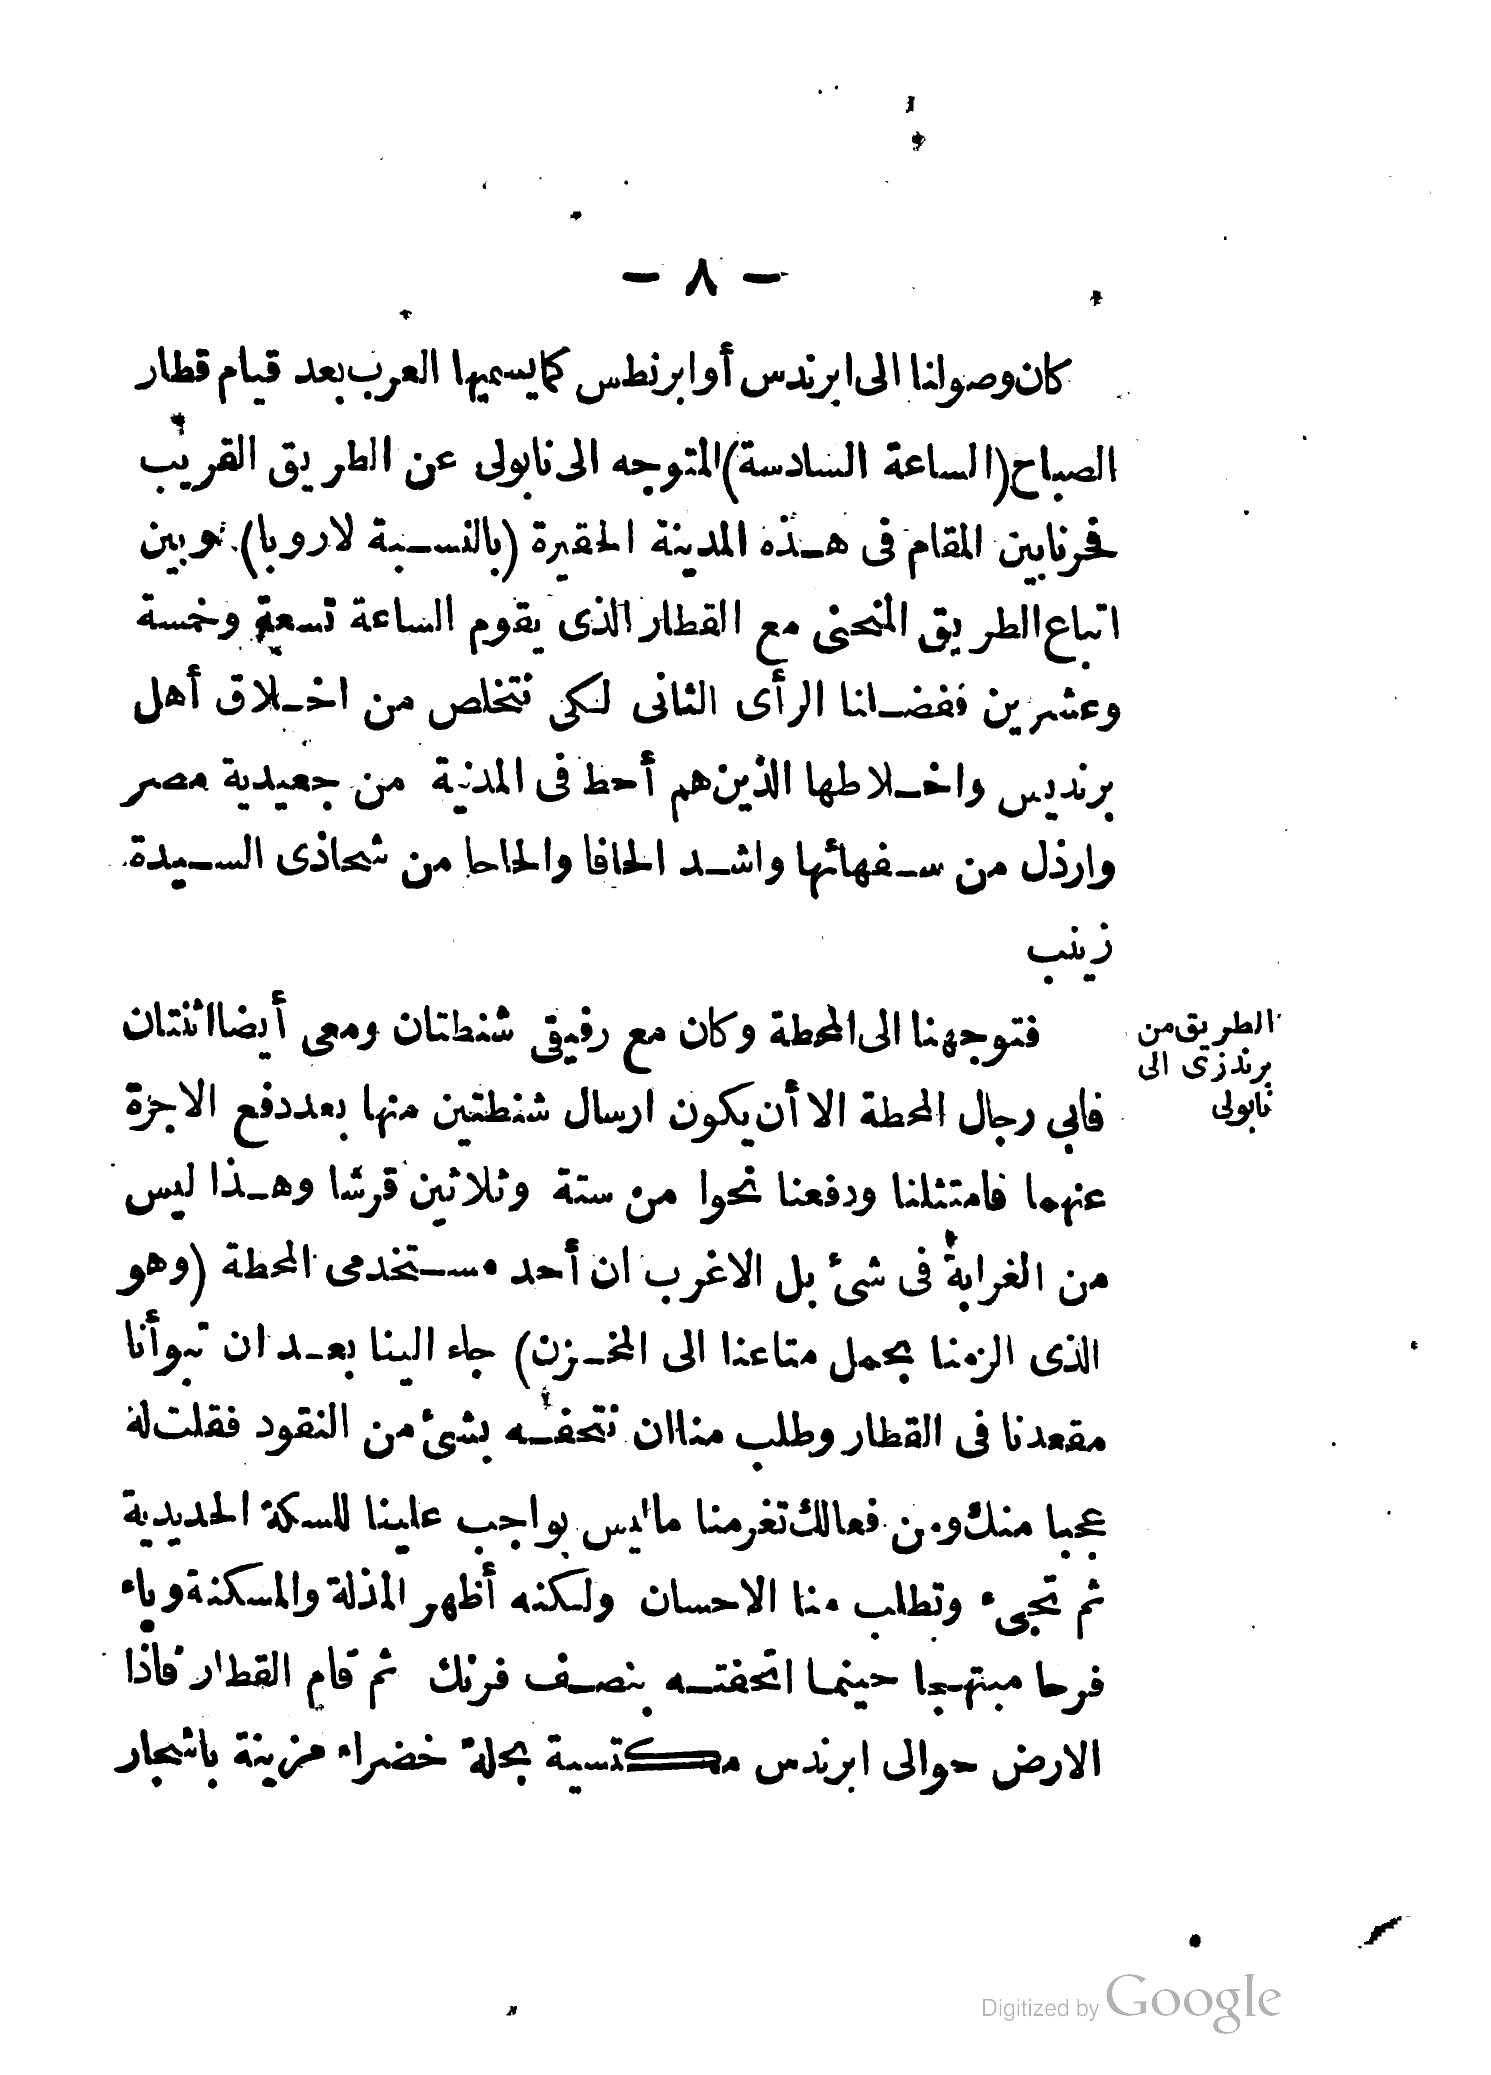 — ٨ —
كان وصولنا الى ابرندس أو ابرنطس كما يسميها العرب بعد قيام قطار
الصباح (الساعة السادسة) المتوجه الى نابولى عن الطريق القريب
فخرنا بين المقام فى هذه المدينة الحقيرة (بالنسبة لاروبا) وبين
اتباع الطريق المنحنى مع القطار الذى يقوم الساعة تسعة وخمسة
وعشرين ففضلنا الرأى الثانى لكى نتخلص من اخلاق أهل
برنديس واخلاطها الذين هم أحط فى المدنية من جعيدية مصر
وارذل من سفهائها واشد الحافا والحاحا من شحاذى السيدة
زينب
الطريق من
برندزى الى
نابولى
فتوجهنا الى المحطة وكان مع رفيقى شنطتان ومعى أيضا اثنتان
فابى رجال المحطة الا أن يكون ارسال شنطتين منها بعد دفع الاجرة
عنهما فامتثلنا ودفعنا نحوا من ستة وثلاثين قرشا وهذا ليس
من الغرابة فى شئ بل الاغرب ان أحد مستخدمى المحطة (وهو
الذى الزمنا بحمل متاعنا الى المخزن) جاء الينا بعد ان تبوأنا
مقعدنا فى القطار وطلب منا ان نتحفه بشئ من النقود فقلت له
عجبا منك ومن فعالك تغرمنا ما ليس بواجب علينا للسكة الحديدية
ثم تجىء وتطلب منا الاحسان ولكنه أظهر المذلة والمسكنة وباء
فرحا مبتهجا حينما اتحفته بنصف فرنك ثم قام القطار فاذا
الارض حوالى ابرندس مكتسية بحلة خضراء مزينة باشجار
Digitized by Google